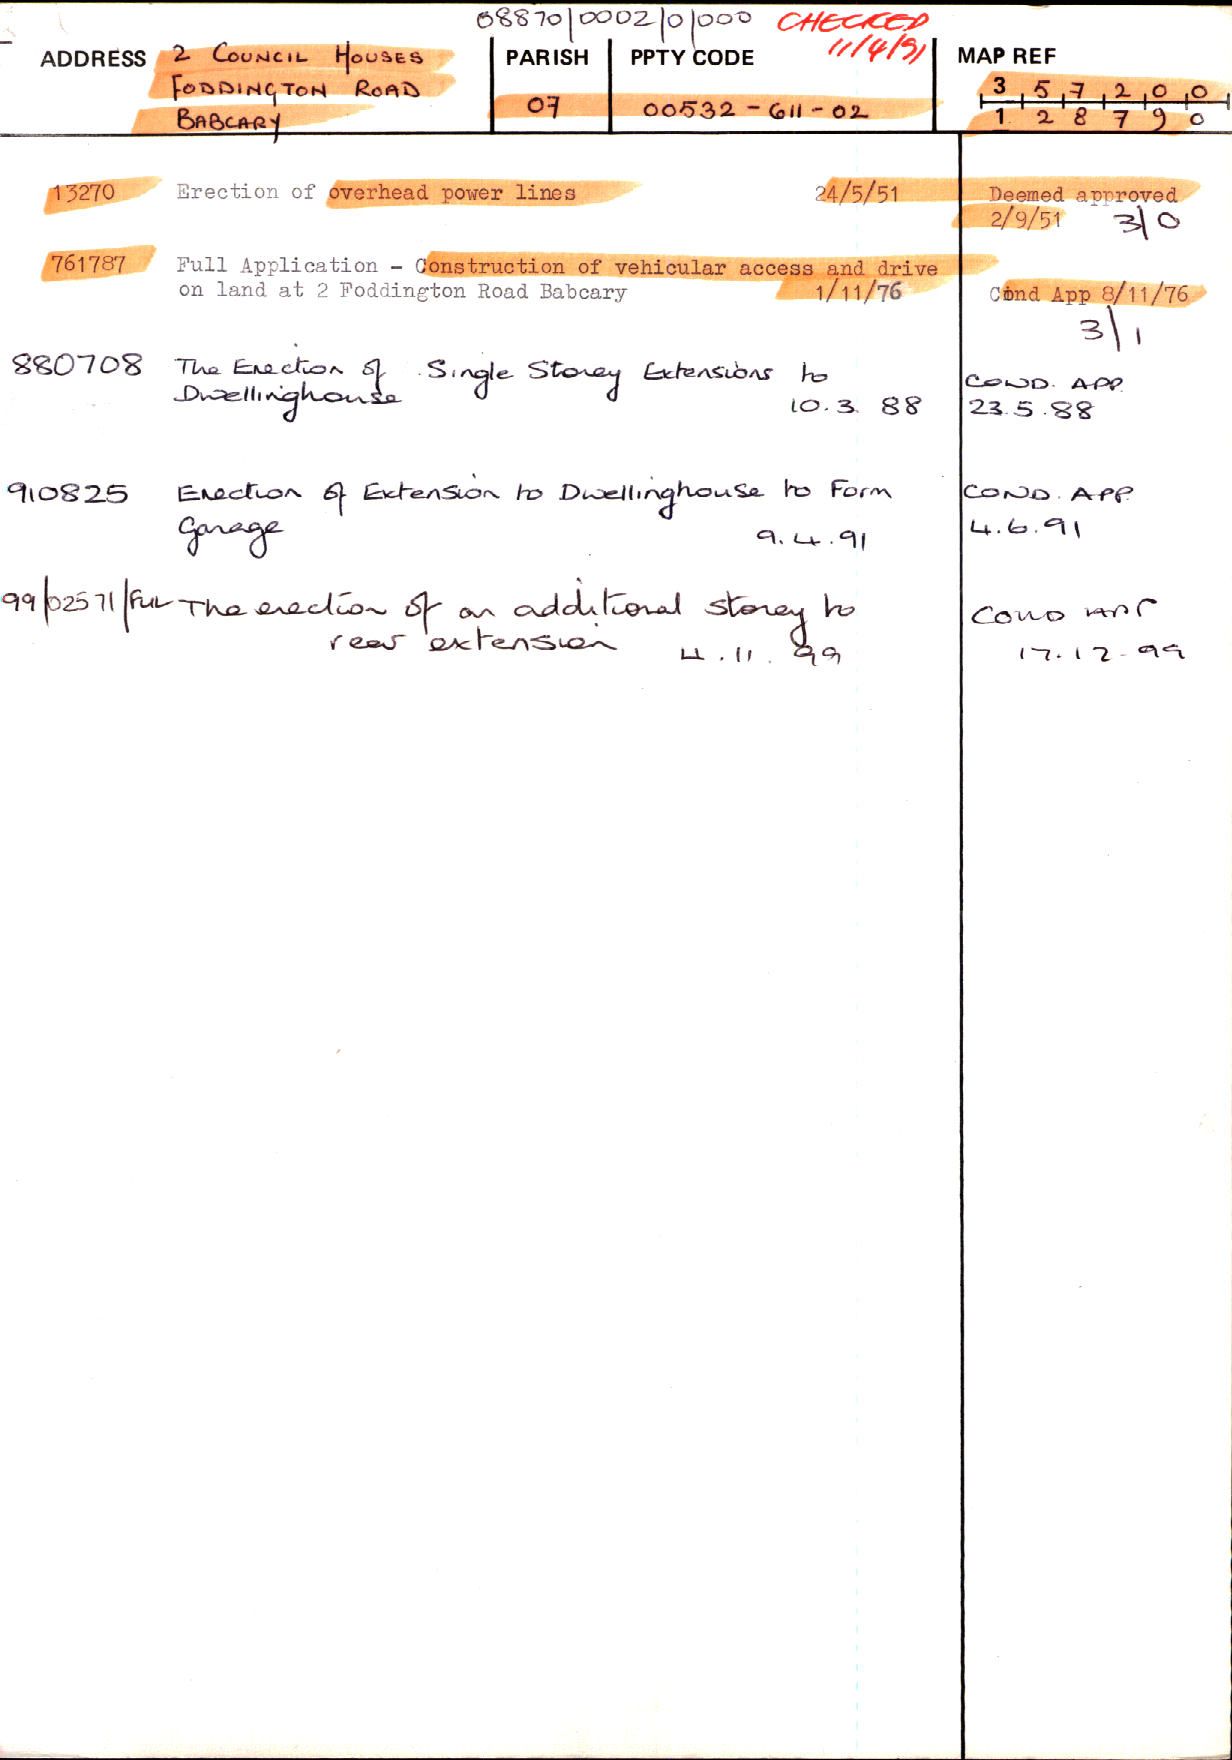 08870/0002/0/000 CHECKED
11/4/91
ADDRESS 2 COUNCIL HOUSES PARISH PPTY CODE MAP REF
FODDINGTON ROAD 3 5 7 2 0 0
BABCARY 07 00532-611-02 1 2 8 7 9 0
13270 Erection of overhead power lines 24/5/51 Deemed approved
2/9/51 3/0
761787 Full Application - Construction of vehicular access and drive
on land at 2 Foddington Road Babcary 1/11/76 Cond App 8/11/76
3/1
880708 The Erection of Single Storey Extensions to COND. APP.
Dwellinghouse 10.3.88 23.5.88
910825 Erection of Extension to Dwellinghouse to Form COND. APP.
Garage 9.4.91 4.6.91
99/02571/FUL The erection of an additional storey to COND APP
rear extension 4.11.99 17.12.99